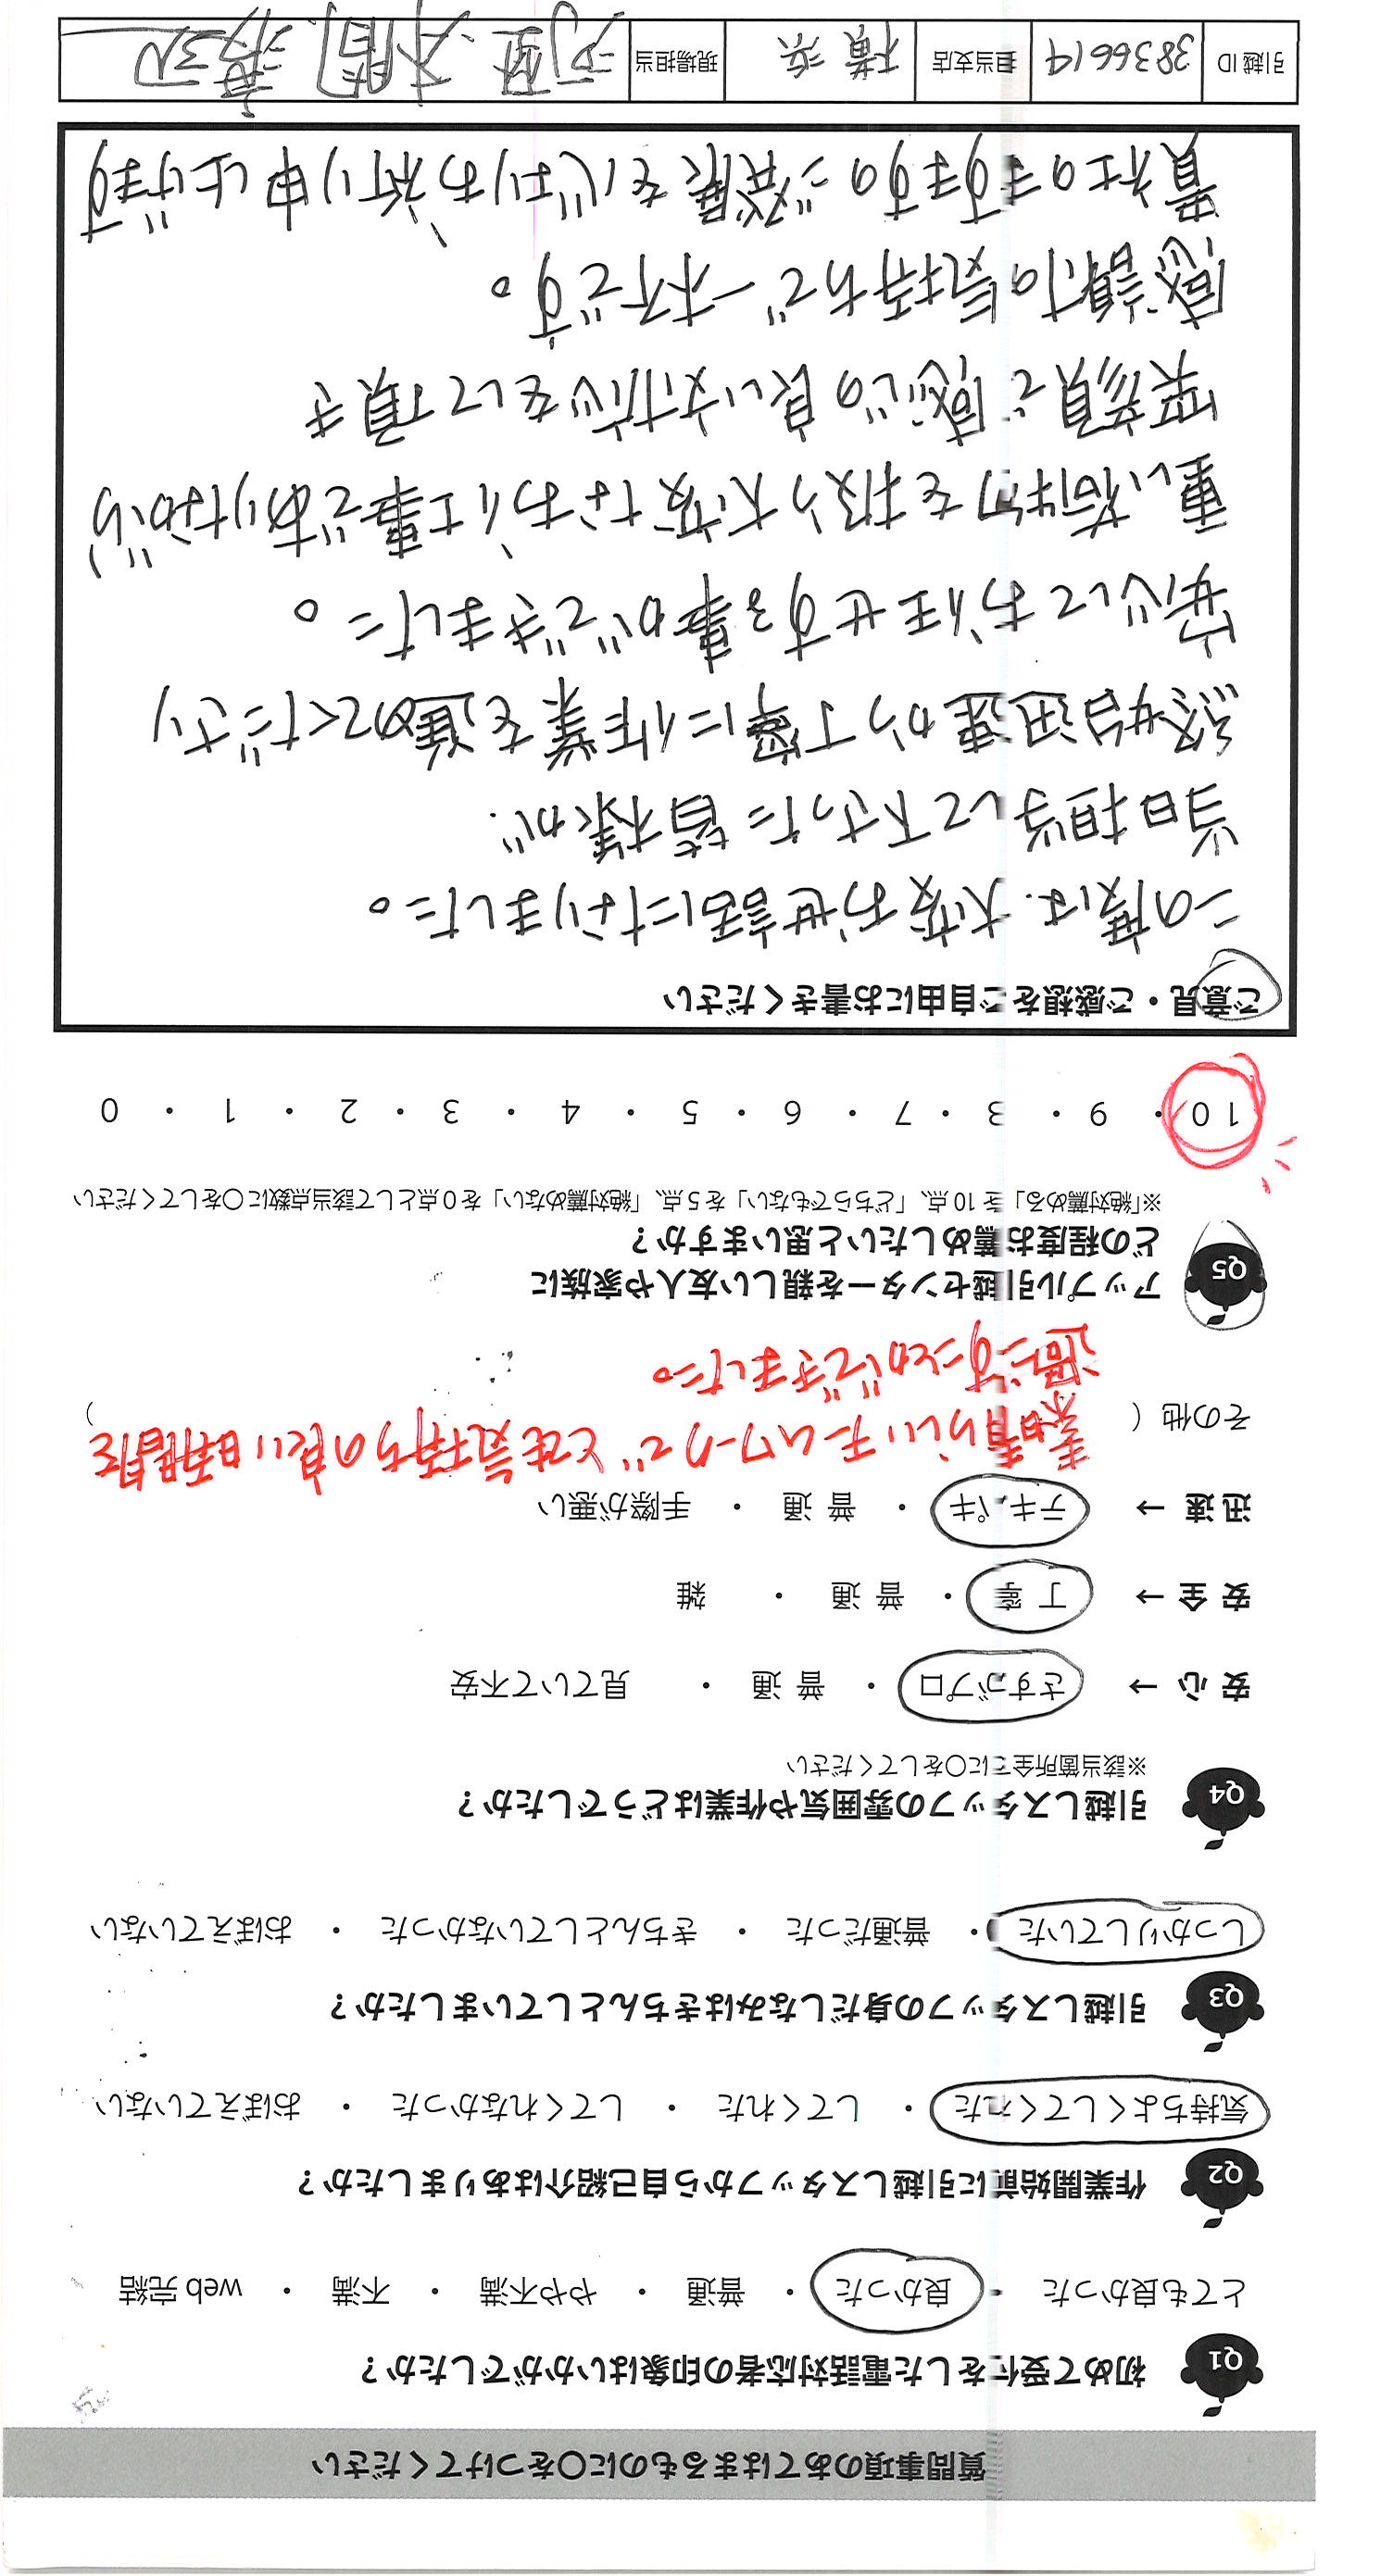 質問事項のあてはまるものに〇をつけてください
Q1 初めて受付をした電話対応者の印象はいかがでしたか？
とても良かった ・ 良かった ・ 普通 ・ やや不満 ・ 不満 ・ web完結
Q2 作業開始前に引越しスタッフから自己紹介はありましたか？
気持ちよくしてくれた ・ してくれた ・ してくれなかった ・ おぼえていない
Q3 引越しスタッフの身だしなみはきちんとしていましたか？
しっかりしていた ・ 普通だった ・ きちんとしていなかった ・ おぼえていない
Q4 引越しスタッフの雰囲気や作業はどうでしたか？
※該当箇所全てに〇をしてください
安心 → さすがプロ ・ 普通 ・ 見ていて不安
安全 → 丁寧 ・ 普通 ・ 雑
迅速 → テキパキ ・ 普通 ・ 手際が悪い
その他（ 素晴らしいチームワークでとても気持ちの良い時間を ）
過ごすことができました。
Q5 アップル引越センターを親しい友人や家族に
どの程度お薦めしたいと思いますか？
※「絶対薦める」を10点、「どちらでもない」を5点、「絶対薦めない」を0点として該当点数に〇をしてください
10 ・ 9 ・ 8 ・ 7 ・ 6 ・ 5 ・ 4 ・ 3 ・ 2 ・ 1 ・ 0
ご意見・ご感想をご自由にお書きください
この度は、大変お世話になりました。
当日担当して下さった皆様が、
終始迅速かつ丁寧に作業を進めてくださり
安心してお任せする事ができました。
重い荷物を扱う大変なお仕事でありながら、
笑顔で感じの良い対応をして頂き
感謝の気持ちで一杯です。
貴社のますますのご発展を心よりお祈り申し上げます
引越ID 3836614 担当支店 横浜 現場担当